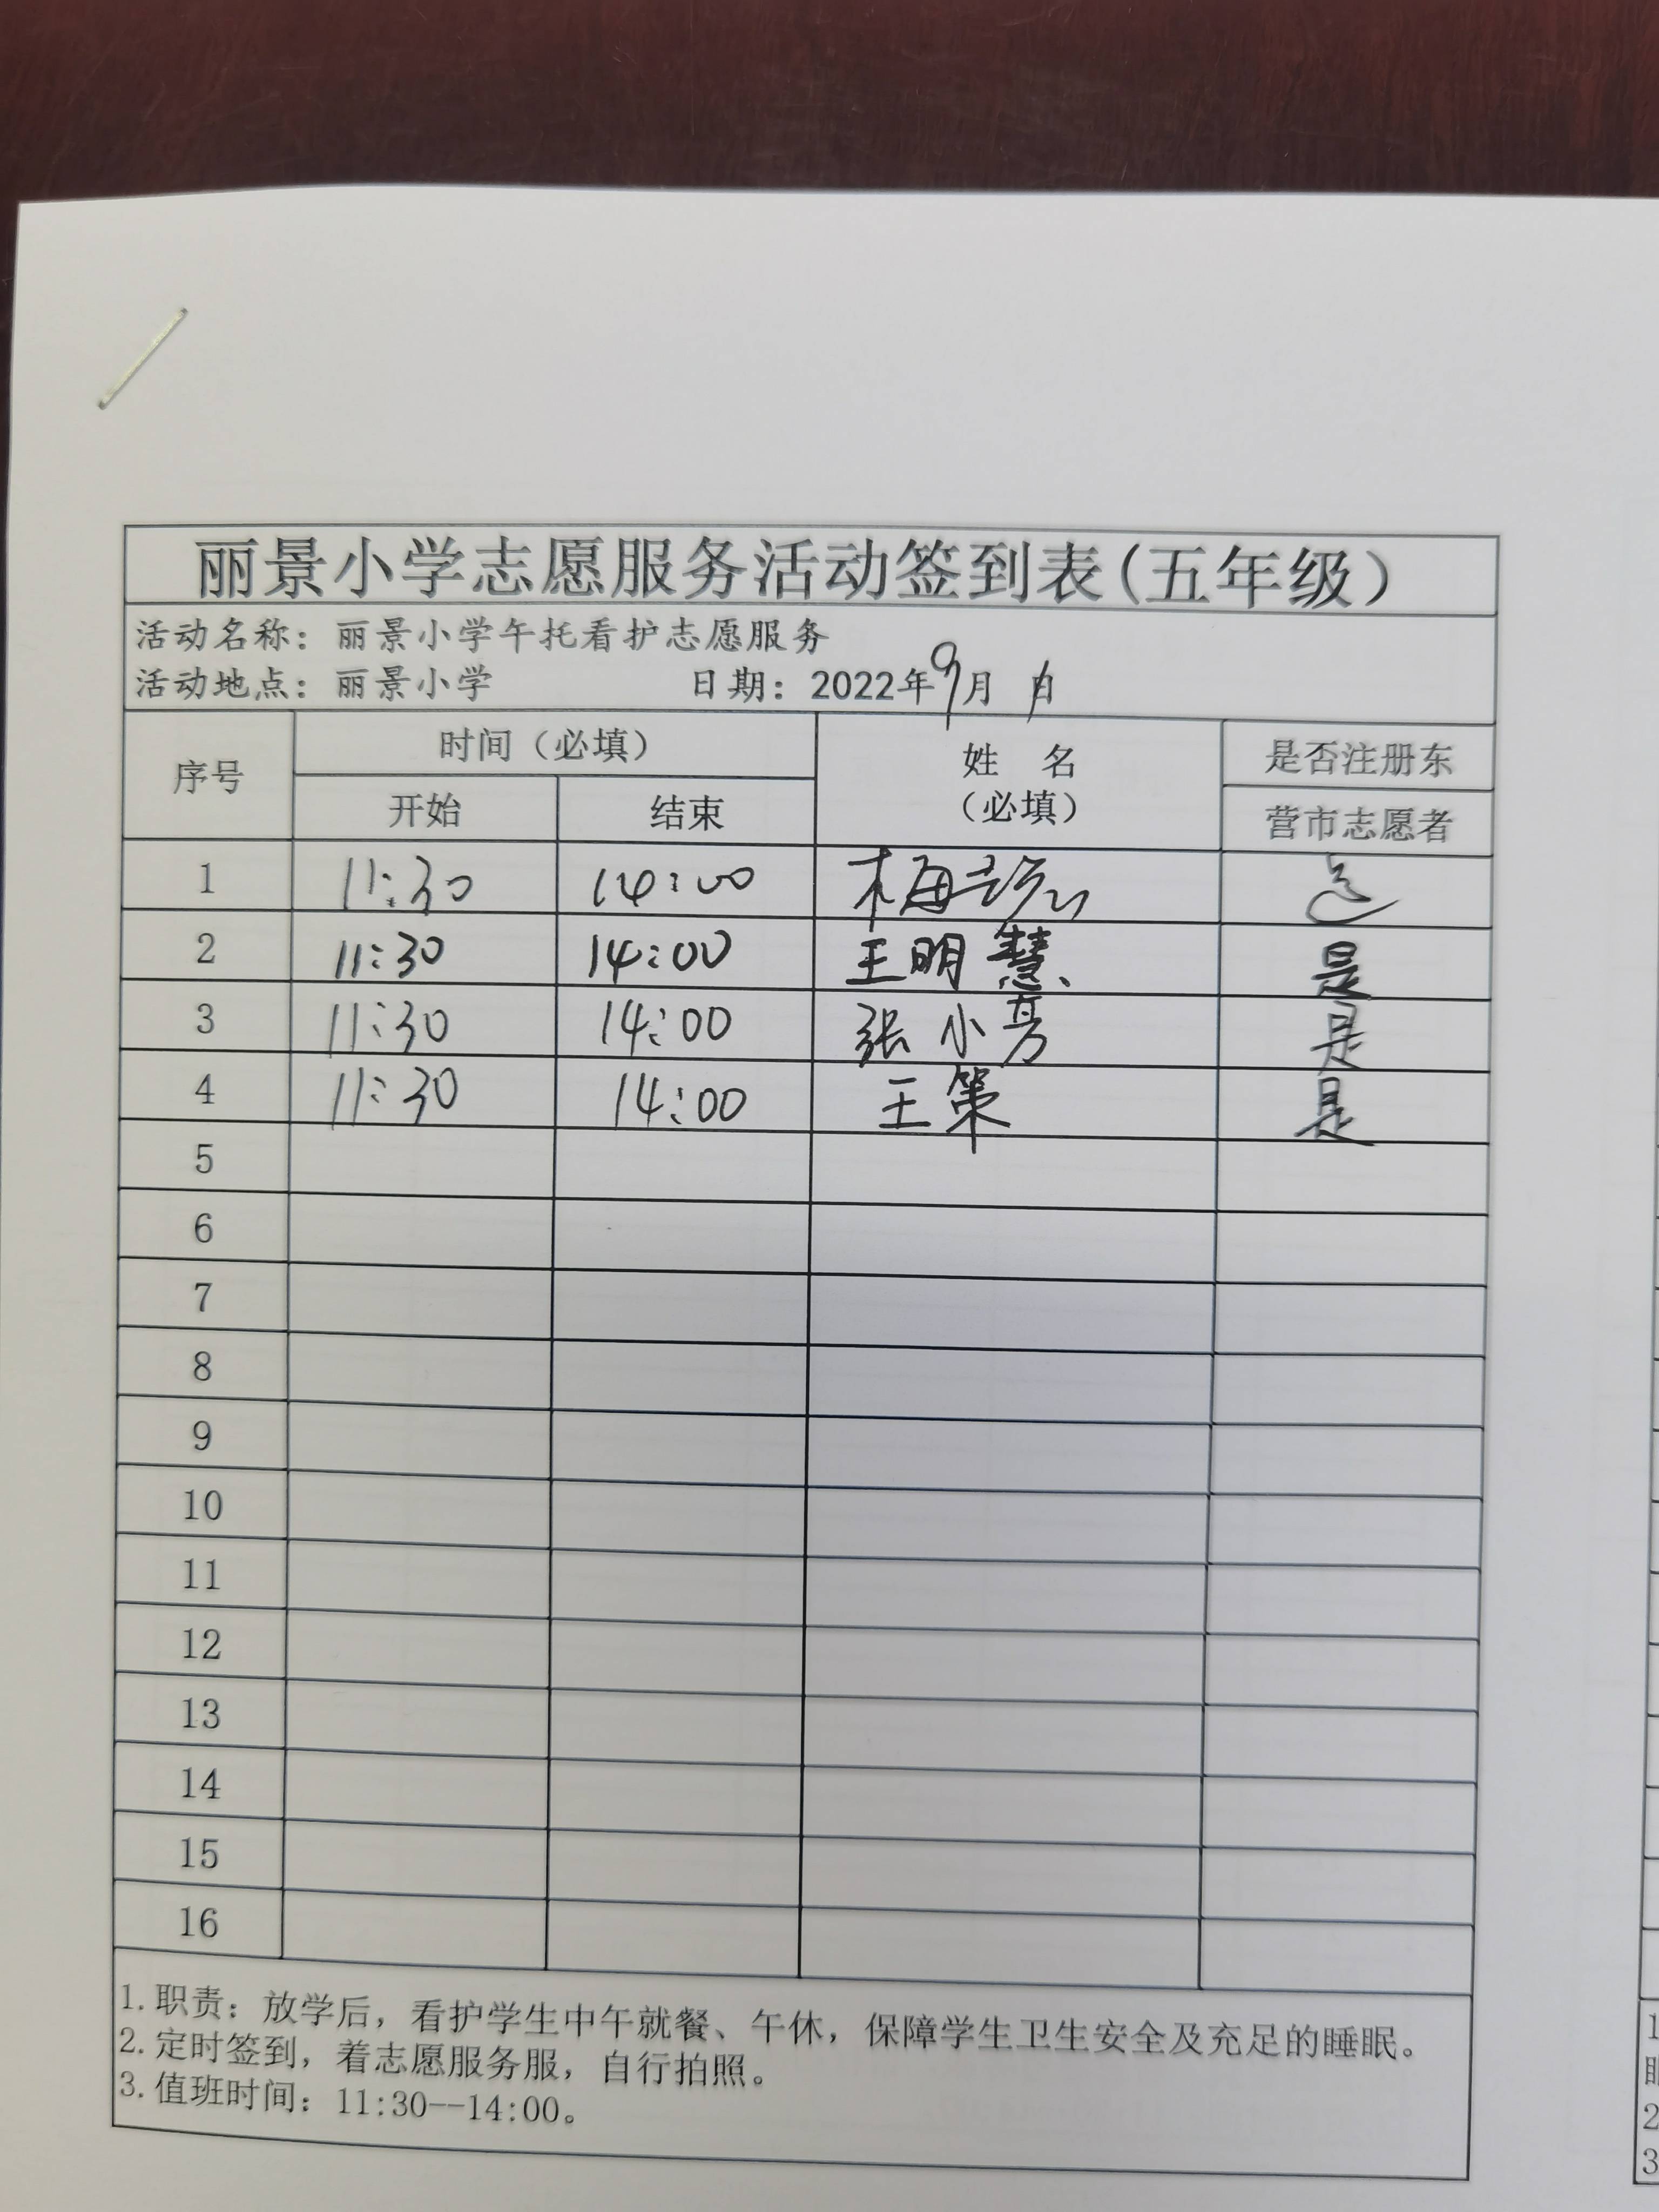 丽景小学志愿服务活动签到表(五年级)
活动名称：丽景小学午托看护志愿服务
活动地点：丽景小学 日期：2022年9月 日
序号 时间（必填） 姓 名 （必填） 是否注册东
开始 结束 营市志愿者
1 11:30 14:00 梅 是
2 11:30 14:00 王明慧 是
3 11:30 14:00 张小芳 是
4 11:30 14:00 王策 是
5
6
7
8
9
10
11
12
13
14
15
16
1.职责：放学后，看护学生中午就餐、午休，保障学生卫生安全及充足的睡眠。
2.定时签到，着志愿服务服，自行拍照。
3.值班时间：11:30--14:00。
1
2
3